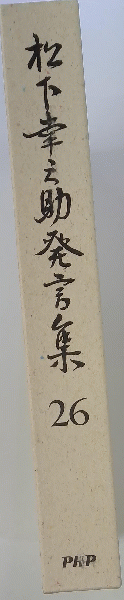 松下幸之助発言集
26
PHP